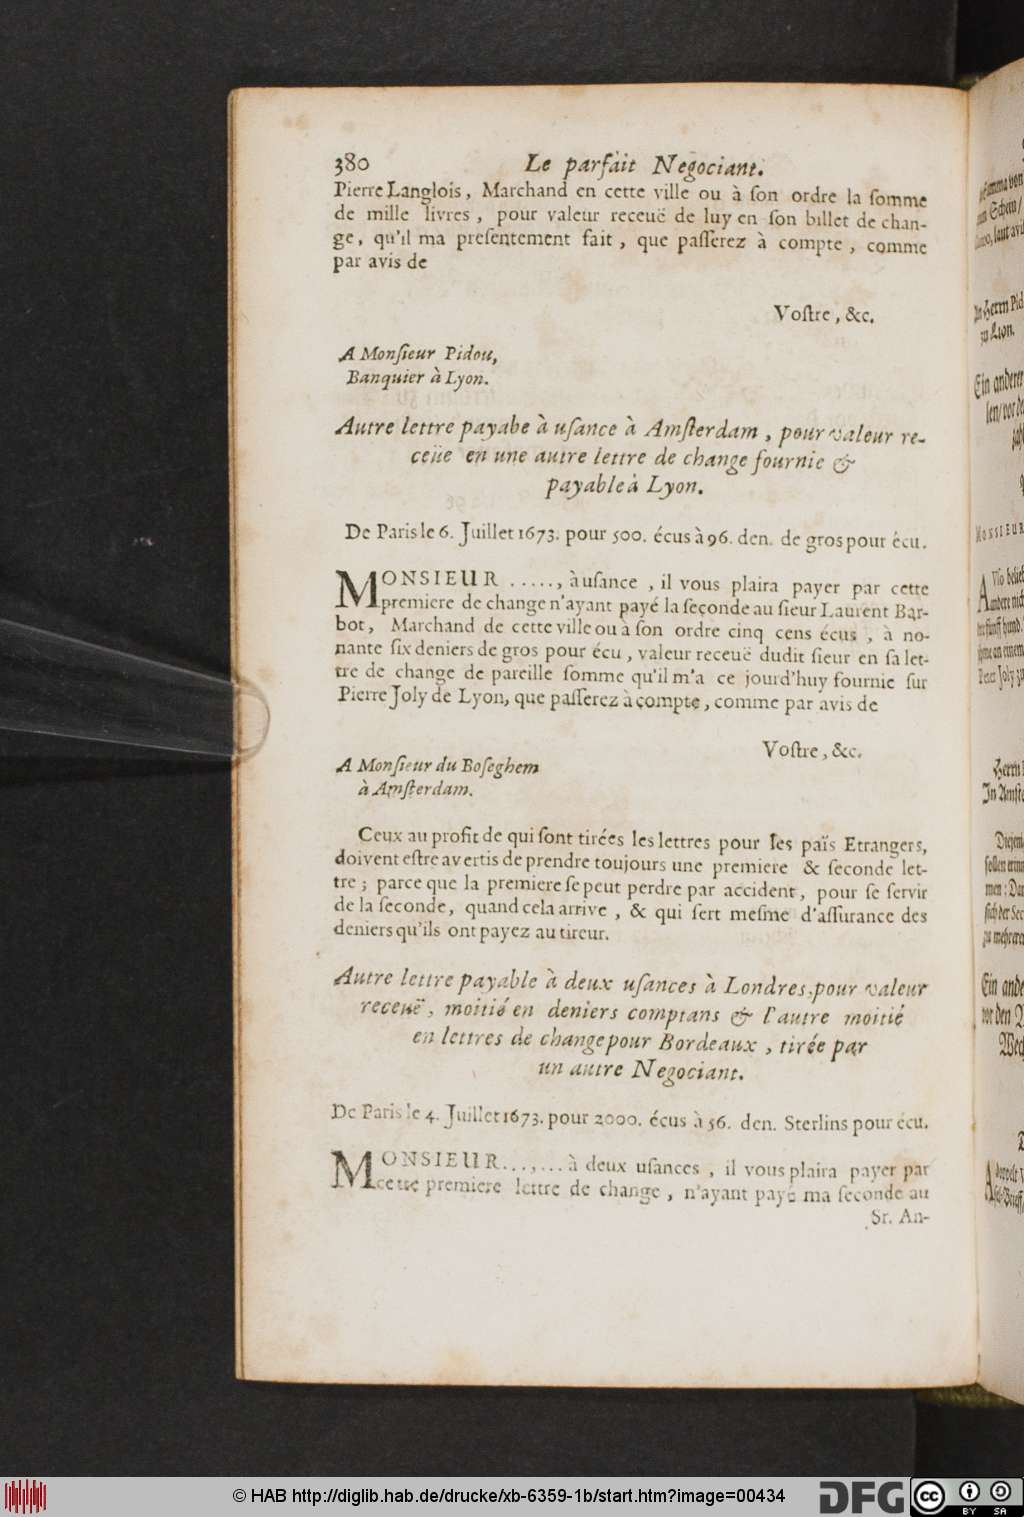 380 Le parfait Negociant.
Pierre Langlois, Marchand en cette ville ou à ſon ordre la ſomme
de mille livres, pour valeur receuë de luy en ſon billet de chan-
ge, qu'il ma preſentement fait, que paſſerez à compte, comme
par avis de
Voſtre, &c.
A Monſieur Pidou,
Banquier à Lyon.
Autre lettre payabe à uſance à Amſterdam, pour valeur re-
ceüe en une autre lettre de change fournie &
payable à Lyon.
De Paris le 6. Juillet 1673. pour 500. écus à 96. den. de gros pour écu.
MONSIEUR ....., à uſance, il vous plaira payer par cette
premiere de change n'ayant payé la ſeconde au ſieur Laurent Bar-
bot, Marchand de cette ville ou à ſon ordre cinq cens écus, à no-
nante ſix deniers de gros pour écu, valeur receuë dudit ſieur en ſa let-
tre de change de pareille ſomme qu'il m'a ce jourd'huy fournie ſur
Pierre Joly de Lyon, que paſſerez à compte, comme par avis de
Voſtre, &c.
A Monſieur du Boſeghem
à Amſterdam.
Ceux au profit de qui ſont tirées les lettres pour les païs Etrangers,
doivent eſtre avertis de prendre toujours une premiere & ſeconde let-
tre; parce que la premiere ſe peut perdre par accident, pour ſe ſervir
de la ſeconde, quand cela arrive, & qui ſert meſme d'aſſurance des
deniers qu'ils ont payez au tireur.
Autre lettre payable à deux uſances à Londres, pour valeur
receuë, moitié en deniers comptans & l'autre moitié
en lettres de change pour Bordeaux, tirée par
un autre Negociant.
De Paris le 4. Juillet 1673. pour 2000. écus à 56. den. Sterlins pour écu.
MONSIEUR...,... à deux uſances, il vous plaira payer par
cette premiere lettre de change, n'ayant payé ma ſeconde au
Sr. An-
An Herrn Pid
zu Lion.
Ein anderer
MONSIEUR
Peter Joly zu
In Amſte
Ein ande
© HAB http://diglib.hab.de/drucke/xb-6359-1b/start.htm?image=00434
DFG
cc
BY SA